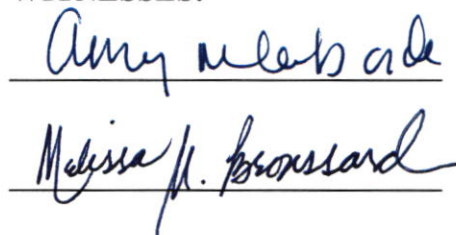 WITNESSES:
Amy
Melissa M. Broussard